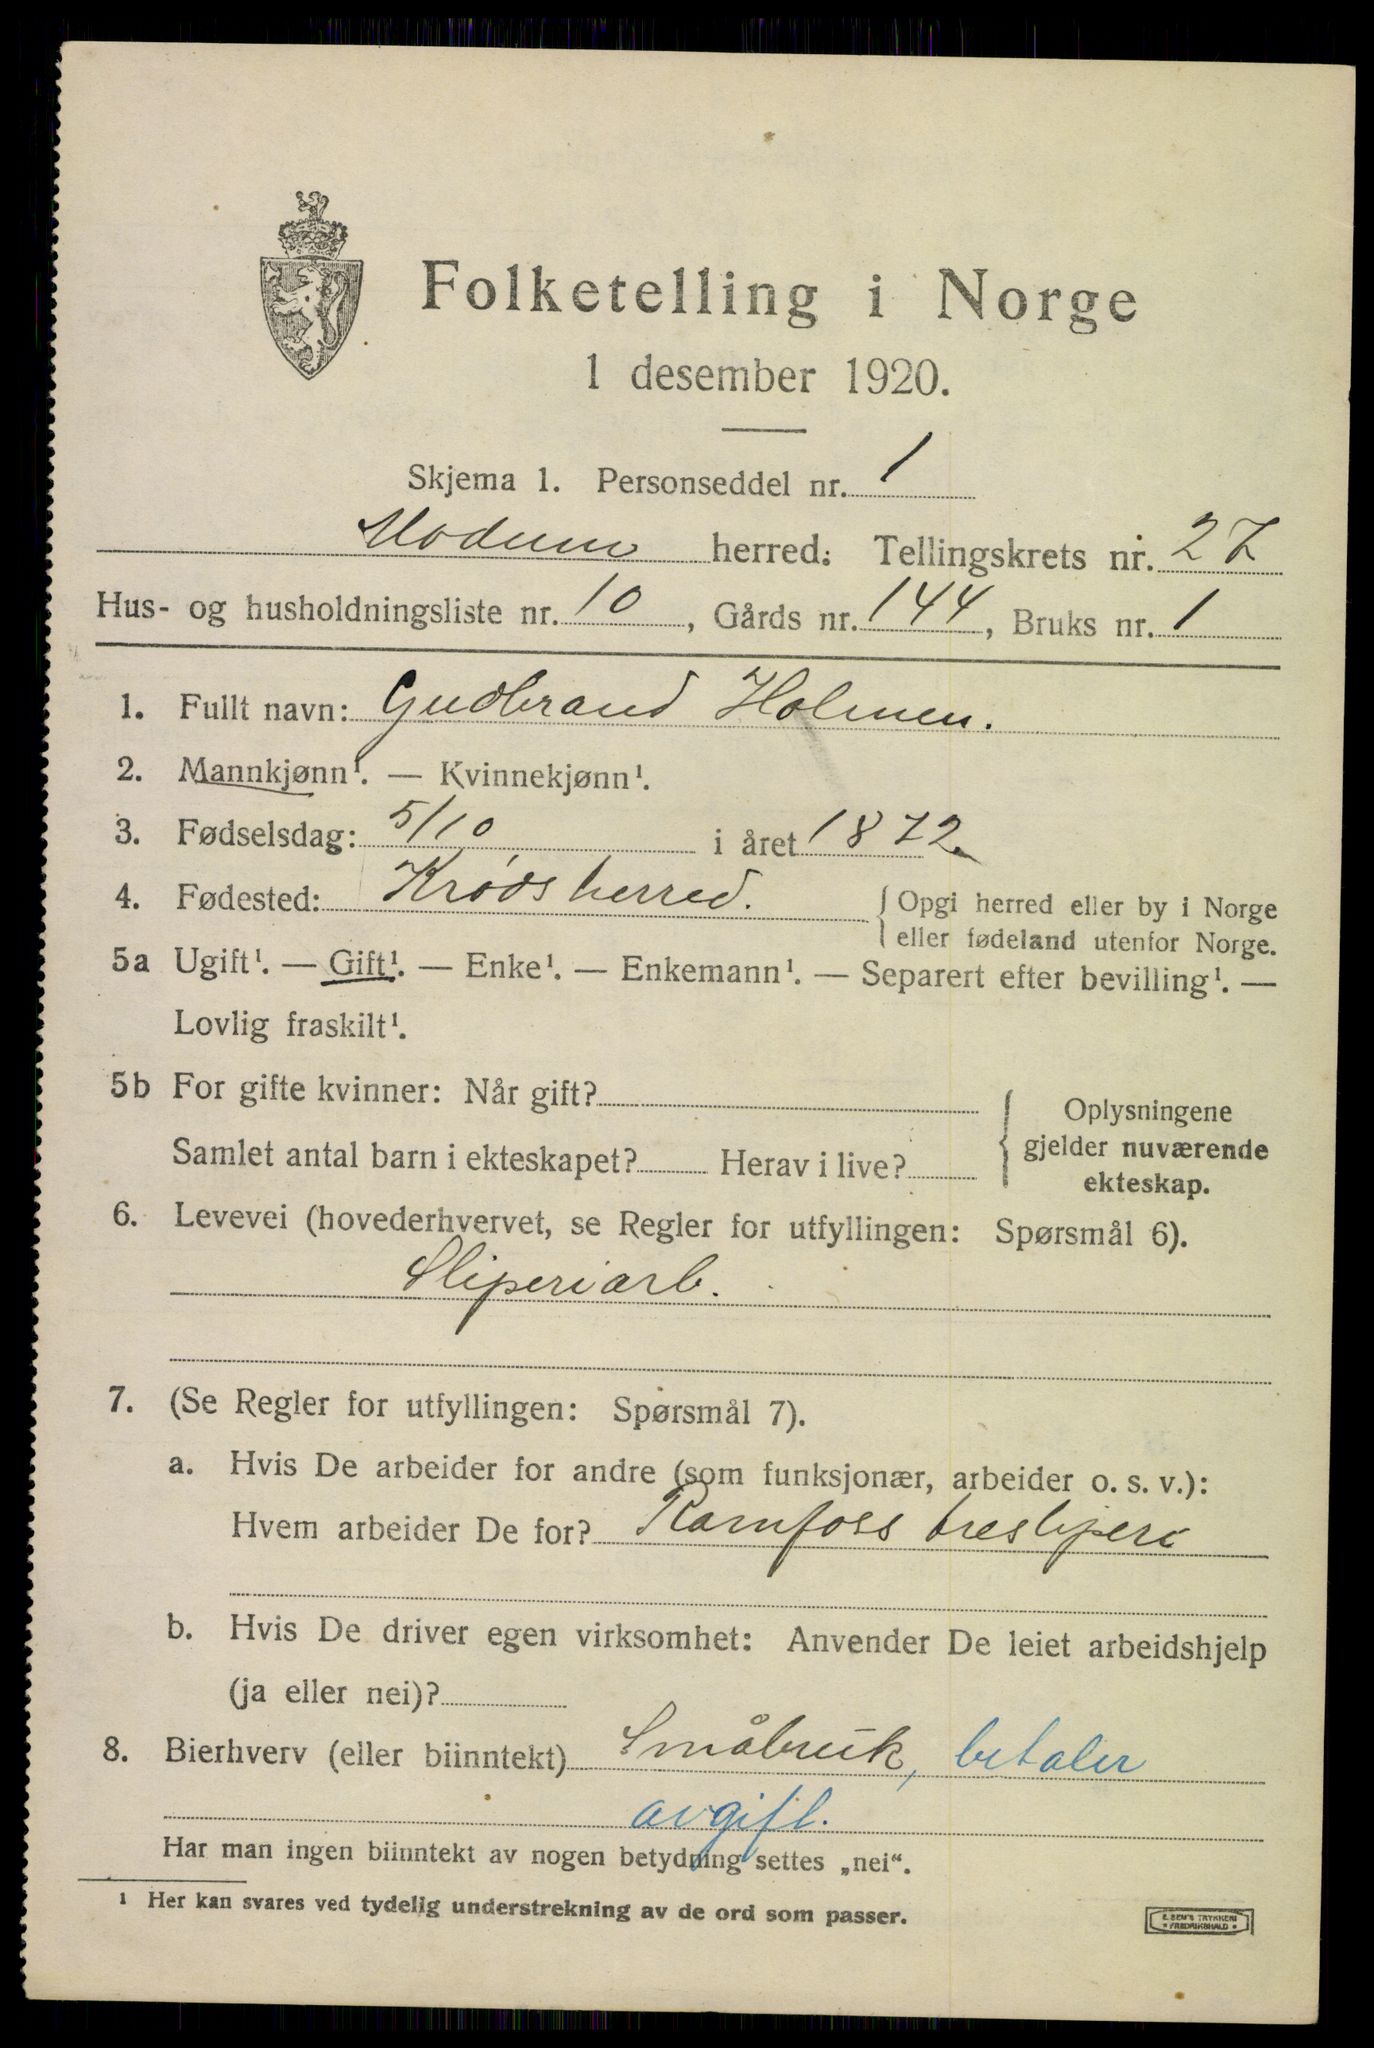 Folketelling i Norge
1 desember 1920.
Skjema 1. Personseddel nr. 1
Modum herred. Tellingskrets nr. 27
Hus- og husholdningsliste nr. 10, Gårds nr. 144, Bruks nr. 1
1. Fullt navn: Gudbrand Holmen.
2. Mannkjønn¹. — Kvinnekjønn¹.
3. Fødselsdag: 5/10 i året 1872.
4. Fødested: Krødsherred. { Opgi herred eller by i Norge
eller fødeland utenfor Norge.
5a Ugift¹. — Gift¹. — Enke¹. — Enkemann¹. — Separert efter bevilling¹. —
Lovlig fraskilt¹.
5b For gifte kvinner: Når gift?
Samlet antal barn i ekteskapet? Herav i live?
{ Oplysningene
gjelder nuværende
ekteskap.
6. Levevei (hovederhvervet, se Regler for utfyllingen: Spørsmål 6).
Sliperiarb.
7. (Se Regler for utfyllingen: Spørsmål 7).
a. Hvis De arbeider for andre (som funksjonær, arbeider o. s. v.):
Hvem arbeider De for? Ramfoss tresliperi
b. Hvis De driver egen virksomhet: Anvender De leiet arbeidshjelp
(ja eller nei)?
8. Bierhverv (eller biinntekt) Småbruk, betaler
avgift.
Har man ingen biinntekt av nogen betydning settes „nei“.
¹ Her kan svares ved tydelig understrekning av de ord som passer.
E. SEM'S TRYKKERI
* FREDRIKSHALD *